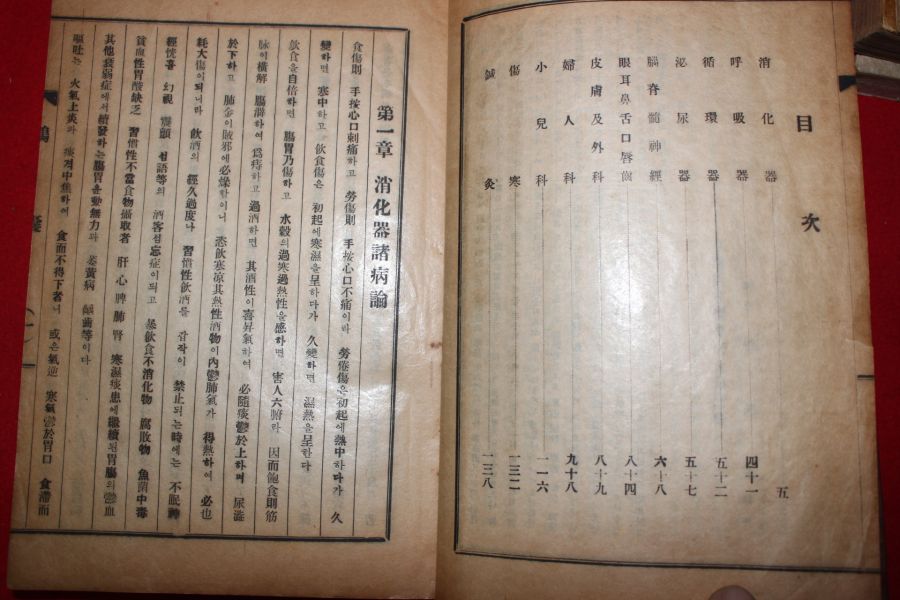 目次
消化器 五
呼吸器 四十一
循環器 五十二
泌尿器 五十七
腦脊髓神經 六十八
眼耳鼻舌口唇齒 八十四
皮膚及外科 八十九
婦人科 九十八
小兒科 一一六
傷寒 一三二
鍼灸 一三八
第一章 消化器諸病論
食傷則 手按心口刺痛하고 勞傷則 手按心口不痛이라 勞倦傷은初起에熱中하다가 久
變하면 寒中하고 飲食傷은 初起에寒濕을呈하다가 久變하면 濕熱을呈한다
飲食을自倍하면 腸胃乃傷하고 水穀의過寒過熱性을感하면 害人六腑라 因而飽食則筋
脉이橫解 腸澼하여爲痔하고 過酒하면 其酒性이喜昇氣하여 必隨痰鬱於上하며 尿澁
於下하고 肺金이賊邪에必燥함이니 恣飲寒凉其熱性酒物이內鬱肺氣가 得熱하여 必也
耗大傷이되니라 飲酒의 經久過度나 習慣性飲酒를 갑작이 禁止되는時에는 不眠神
經恍喜 幻視 震顫 섬語等의 酒客섬忘症이되고 暴飲食不消化物 腐敗物 魚菌中毒
貧血性胃酸缺乏 習慣性不當食物攝取者 肝心脾肺腎 寒濕痰患에繼續된胃腸의鬱血
其他衰弱症에서續發하는腸胃運動無力과 萎黃病 齲齒等이다
嘔吐는 火氣上炎과 痰結中焦하여 食而不得下者니 或은氣逆 寒氣鬱於胃口 食滯而